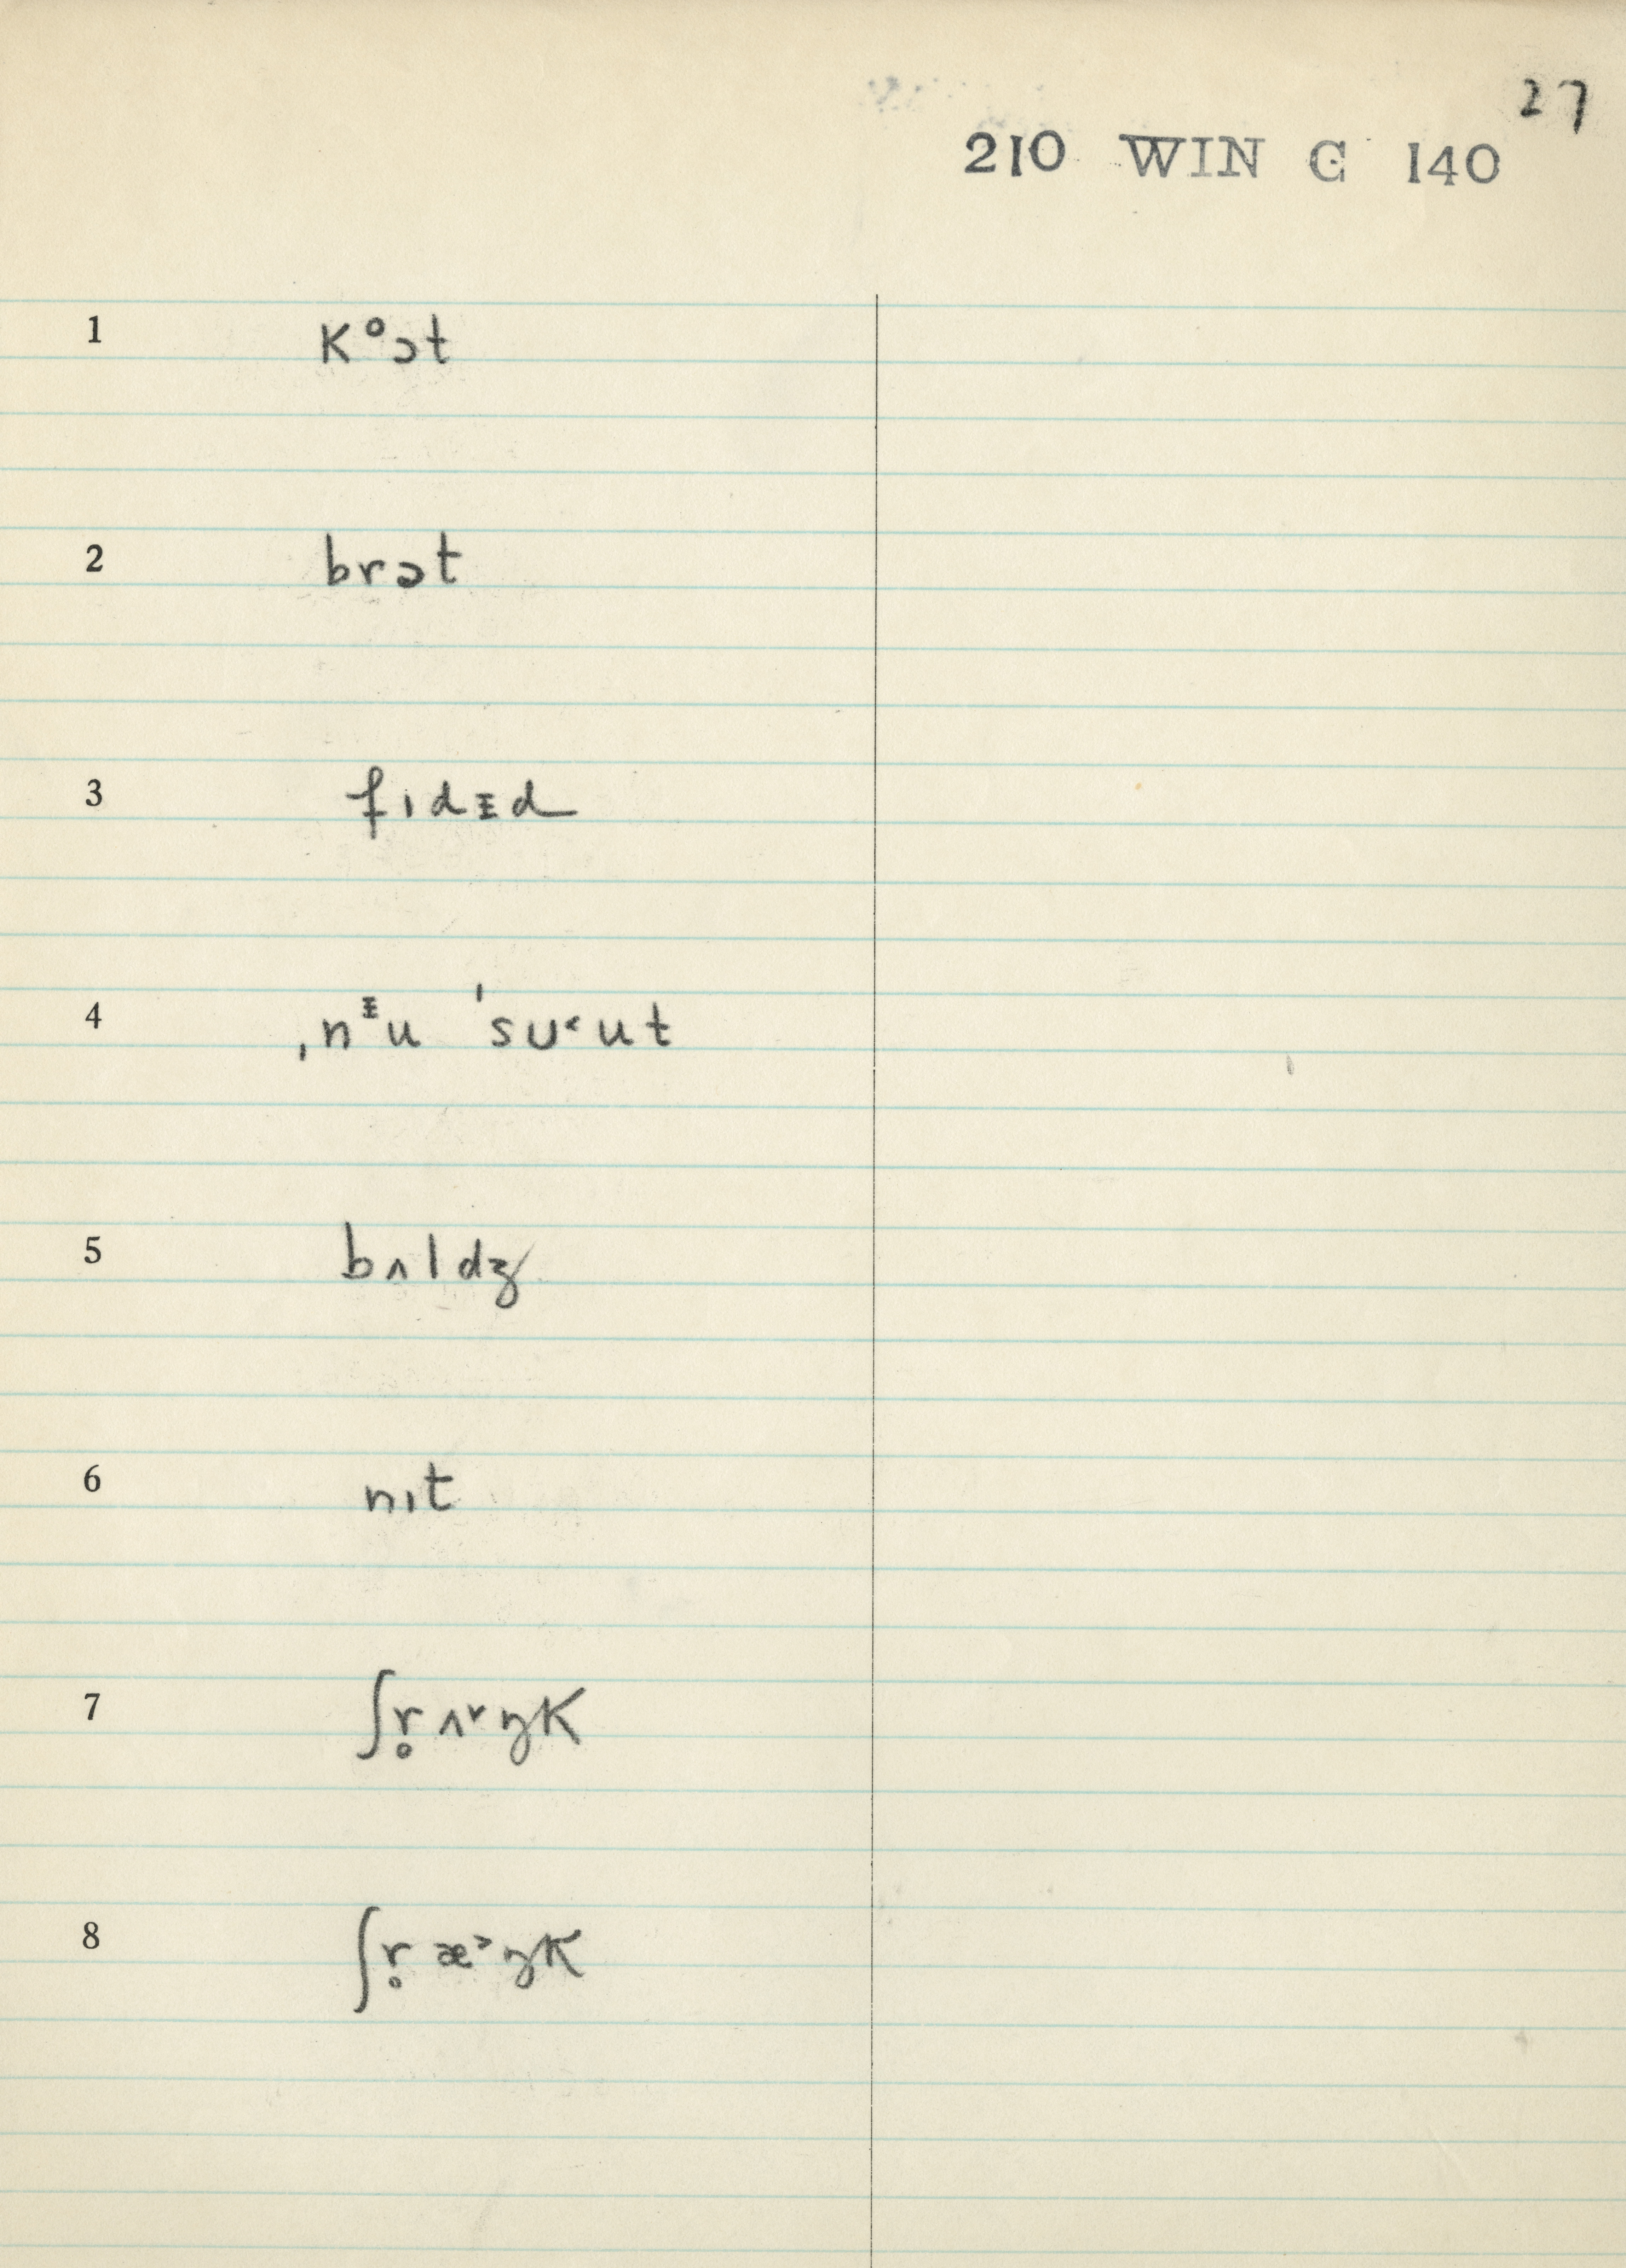 27
210 WIN C 140
1 kᵒɔt
2 brɔt
3 fɪdɪ̵d
4 ˌnᶤ̵u ˈsu˂ut
5 bʌldʒ
6 nɪt
7 ʃr̥ʌ˅ŋk
8 ʃr̥æ˃ŋk